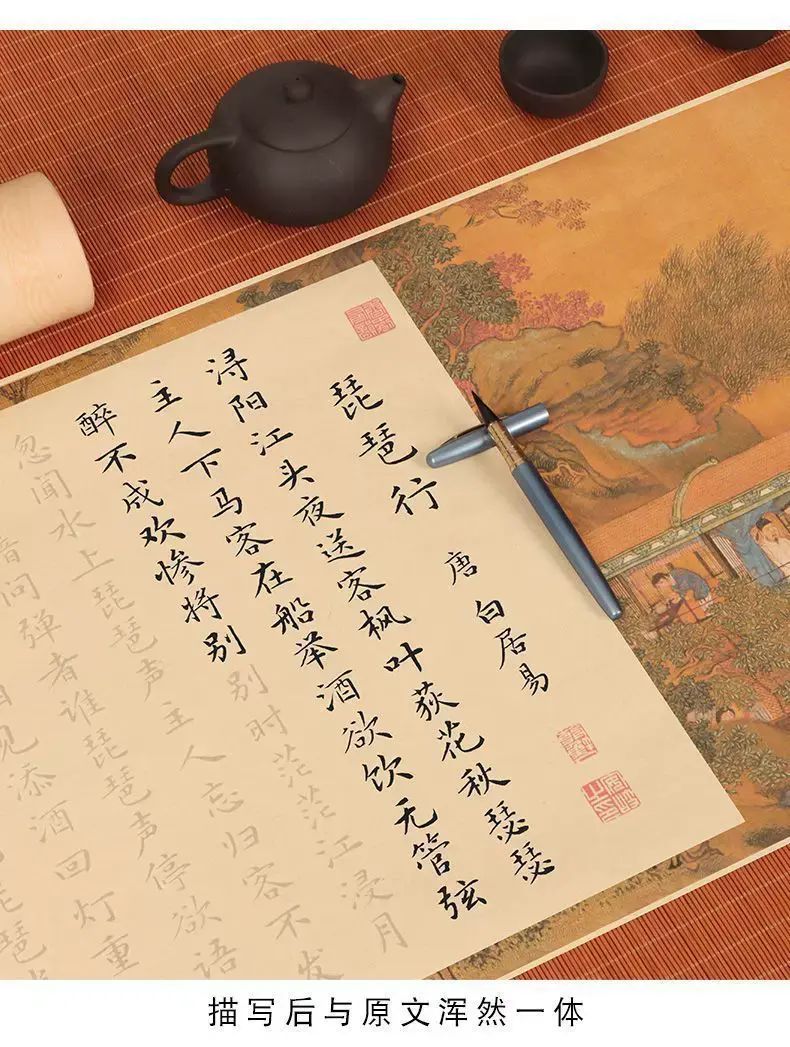 琵琶行
唐 白居易
浔阳江头夜送客枫叶荻花秋瑟瑟
主人下马客在船举酒欲饮无管弦
醉不成欢惨将别别时茫茫江浸月
忽闻水上琵琶声主人忘归客不发
问弹者谁琵琶声停欲语
见添酒回灯重
琵琶
描写后与原文浑然一体